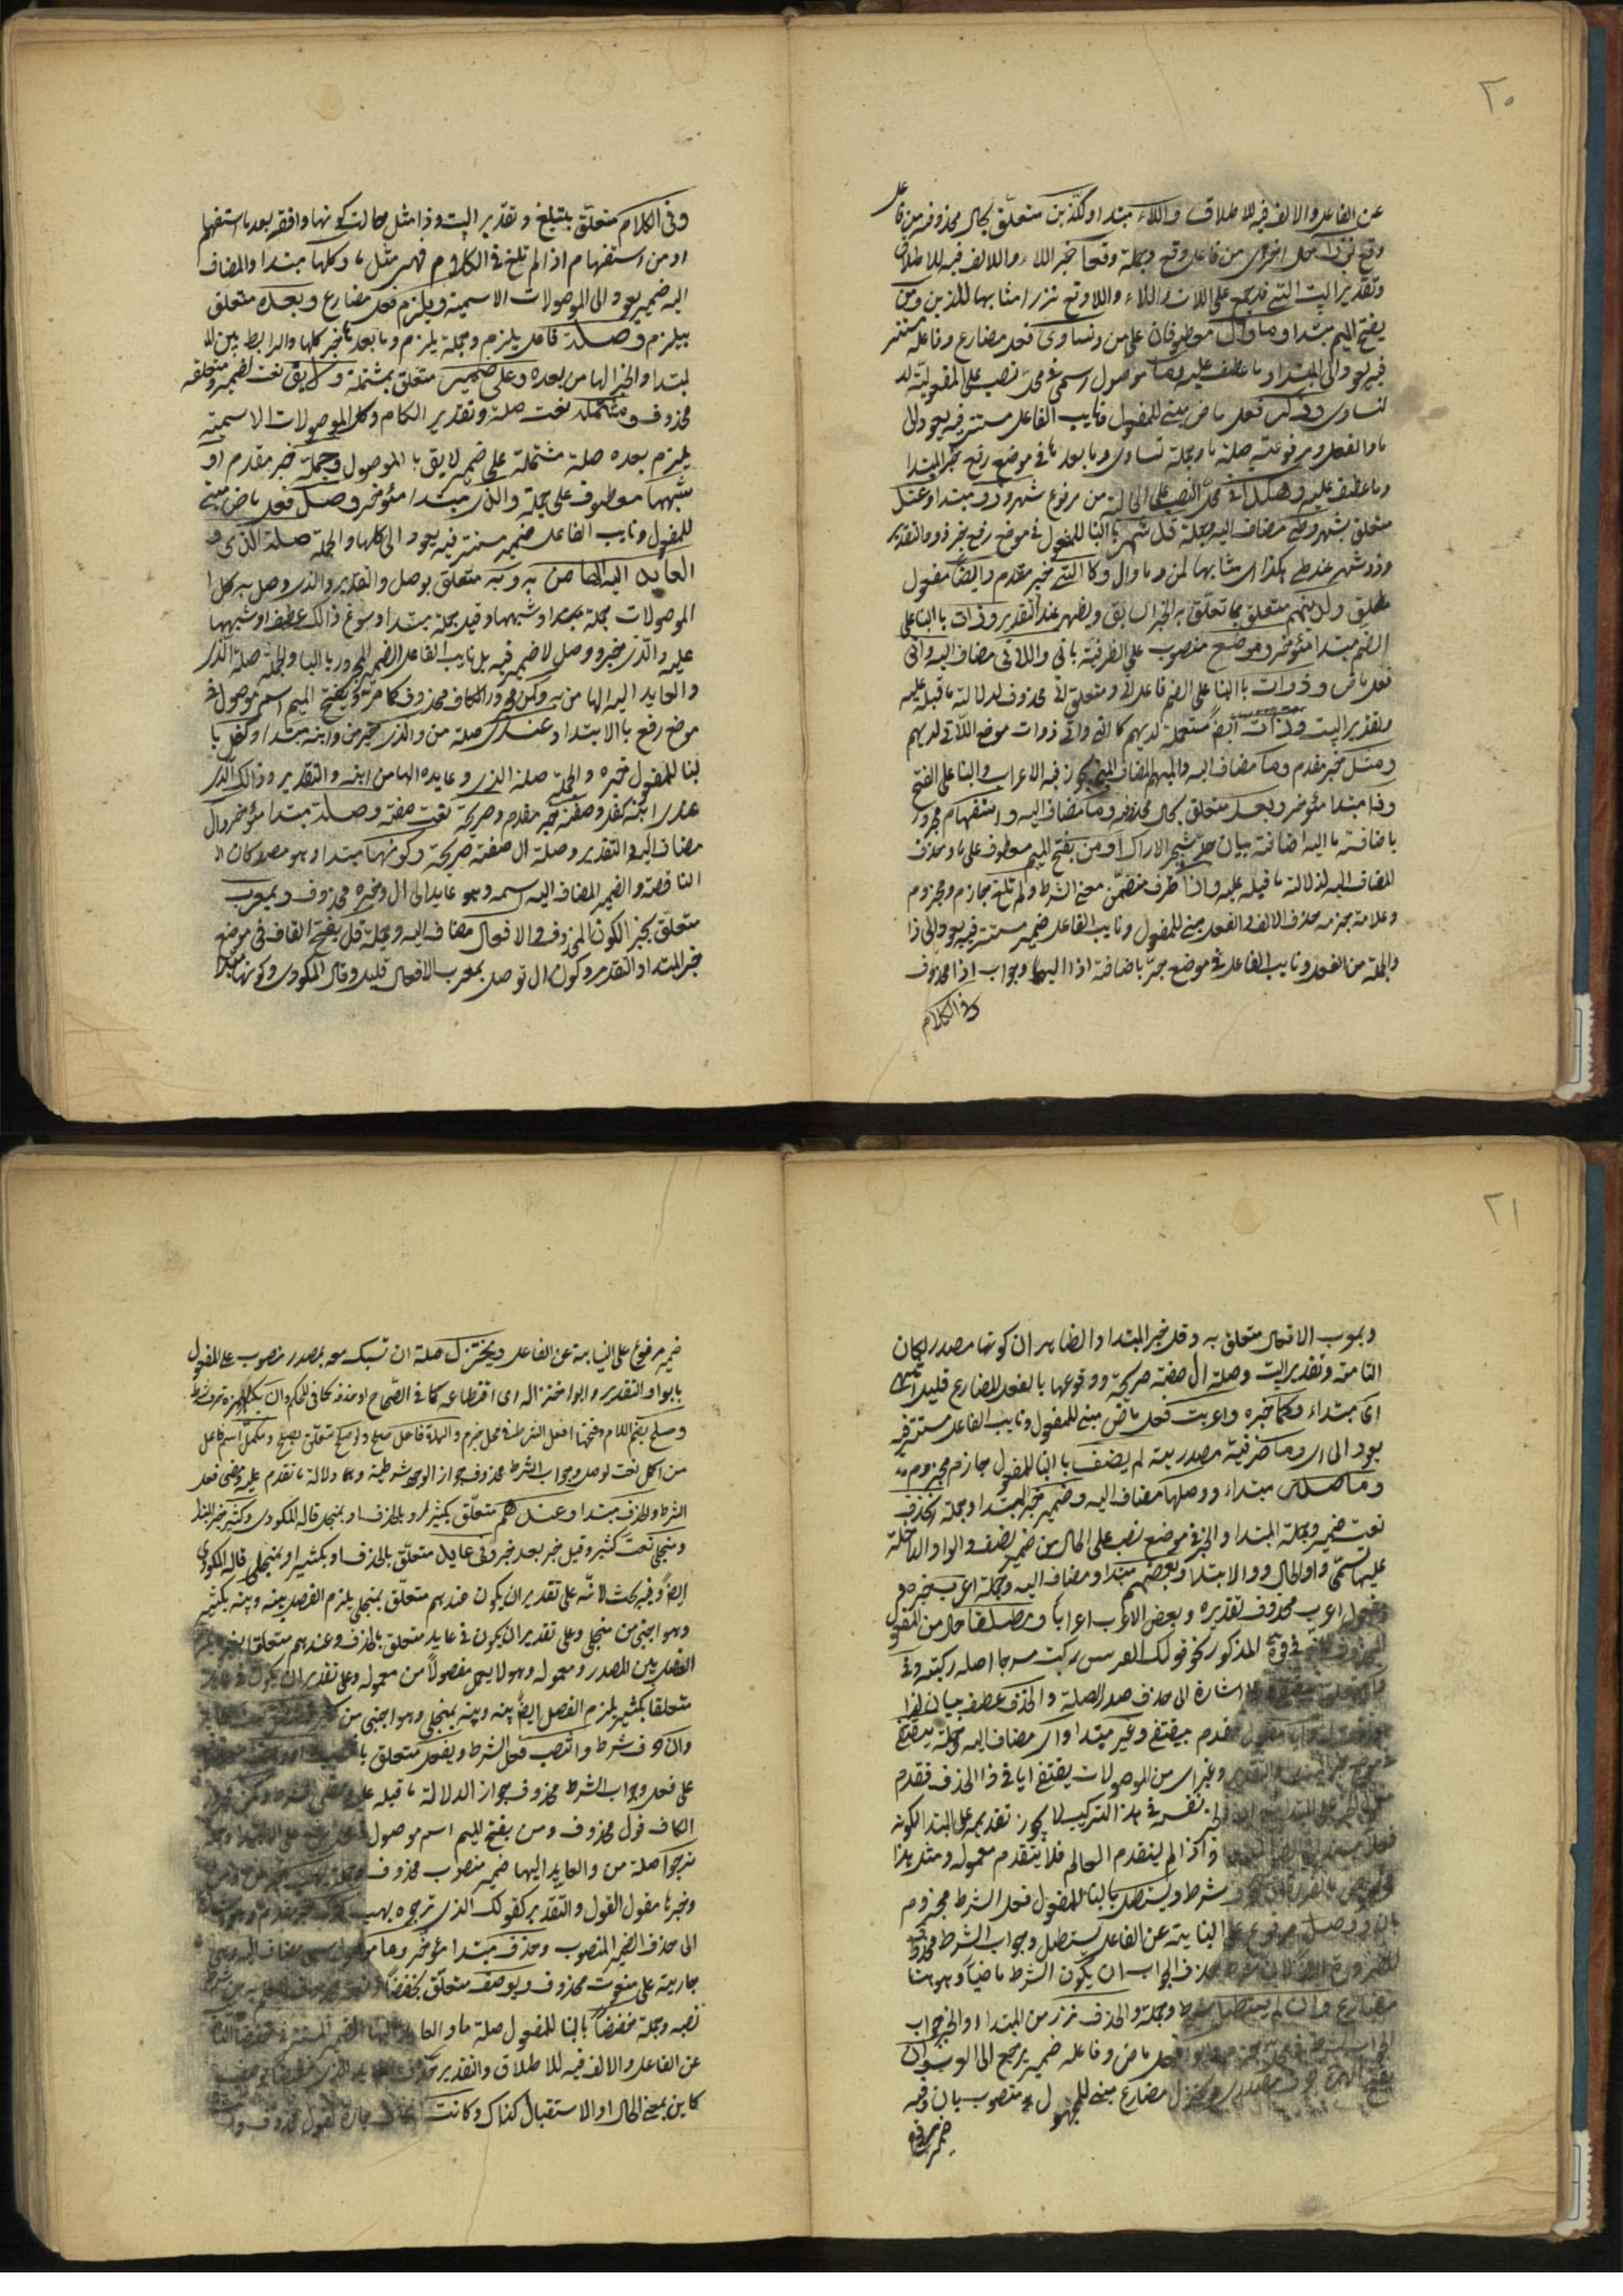 ٢٠
عن الفاعل والالف فيه للاطلاق واللاء مبتدا وكالذين متعلّق بحال محذوفة من فاعل
وقع نزرا حال اخرى من فاعل وقع وجملة وقعا خبر اللاء والالف فيه للاطلاق
وتقدير البيت التي قد جمع على اللات واللاء واللا وقع نزرا مشابها للذين ومن
بفتح الميم مبتدا وما وال معطوفان على من وتساوى فعل مضارع وفاعله مستتر
فيه يعود الى المبتدا وما عطف عليه وما موصول اسمى فى محل نصب على المفعولية له
لتساوى وذكر فعل ماض مبنى للمفعول ونايب الفاعل مستتر فيه يعود الى
ما والفعل ومرفوعه صلة ما وجملة تساوى وما بعدها فى موضع رفع خبر المبتدا
وما عطف عليه وهكذا فى محل النصب على الحالية من مرفوع شهر وذو مبتدا وعند
متعلق بشهر وطى مضاف اليه وجملة قد شهر بالبنا للمفعول فى موضع رفع خبر ذو والتقدير
وذو شهر عند طى هكذا اى مشابها لمن وما وال وكالتى خبر مقدم وايضا مفعول
مطلق ولديهم متعلق بما تعلّق به الخبر السابق ويظهر عند التقدير وذات بالبنا على
الضم مبتدا مؤخر وموضع منصوب على الظرفية باتى واللاتى مضاف اليه واتى
فعل ماض وذوات بالبنا على الضم فاعل اتى ومتعلق اتى محذوف لدلالة ما قبله عليه
وتقدير البيت وذات ايضا مستعملة لديهم كالتى واتى ذوات موضع اللاتى لديهم
ومثل خبر مقدم وما مضاف اليه والمبهم المضاف الى المبنى يجوز فيه الاعراب والبنا على الفتح
وذا مبتدا مؤخر وبعد متعلق بحال محذوفة وما مضاف اليه واستفهام مجرور
باضافة ما اليه اضافة بيان على حد شجر الاراك او من بفتح الميم معطوف على ما وحذف
المضاف اليه لدلالة ما قبله عليه واذا ظرف متضمّن معنى الشرط ولم تلغ جازم ومجزوم
وعلامة جزمه حذف الالف والفعل مبنى للمفعول ونايب الفاعل ضمير مستتر فيه يعود الى ذا
والجملة من الفعل ونايب الفاعل فى موضع جرّ باضافة اذا اليها وجواب اذا محذوف
وفى الكلام
وفى الكلام متعلّق بتلغ وتقدير البيت وذا مثل ما حالة كونها واقعة بعد ما استفهام
او من استفهام اذا لم تلغ فى الكلام فهى مثل ما وكلها مبتدا والمضاف
اليه ضمير يعود الى الموصولات الاسمية ويلزم فعل مضارع وبعده متعلق
بيلزم وصلة فاعل يلزم وجملة يلزم وما بعدها خبر كلها والرابط بين الم
لمبتدا والخبر الها من بعده وعلى ضمير متعلق بمشتملة ولايق نعت لضمير ومتعلقه
محذوف ومشتملة نعت صلة وتقدير الكلام وكل الموصولات الاسمية
يلزم بعده صلة مشتملة على ضمير لايق بالموصول وجملة خبر مقدم او
شبهها معطوف على جملة والذى مبتدا مؤخر وصل فعل ماض مبنى
للمفعول ونايب الفاعل ضمير مستتر فيه يعود الى كلها والجملة صلة الذى و
العايد اليه الها من به وبه متعلق بوصل والتقدير والذى وصل به كل ا
الموصولات جملة مبتدا وشبهها وقيل جملة مبتدا وسوغ ذالك عطف او شبهها
عليه والذى خبره ووصل لا ضمير فيه بل نايب الفاعل الضمير المجرور بالبا والجملة صلة الذى
والعايد اليه الها من به وكمن مجرور الكاف محذوف كما مرّ ومن بفتح الميم اسم موصول فى
موضع رفع بالابتدا وعندى صلة من والذى خبر من وابنه مبتدا وكفل با
لبنا للمفعول خبره والجملة صلة الذى وعايده الها من ابنه والتقدير وذالك الّذى
عندى ابنه كفل وصفة خبر مقدم وصريحة نعت صفة وصلة مبتدا مؤخر وال
مضاف اليه والتقدير وصلة ال صفة صريحة وكونها مبتدا وهو مصدر كان ال
الناقصة والضمير المضاف اليه اسمه وهو عايد الى ال وخبره محذوف وبمعرب
متعلّق بخبر الكون المحذوف والافعال مضاف اليه وجملة قل بفتح القاف فى موضع
خبر المبتدا والتقدير وكون ال توصل بمعرب الافعال قليل وقال المكودى وكونها مبتدا
٢١
وبمعرب الافعال متعلق به وقل خبر المبتدا والظاهر ان كونها مصدر لكان
التامة وتقدير البيت وصلة ال صفة صريحة ووقوعها بالفعل المضارع قليل انتهى
اى مبتداء وكما خبره واعربت فعل ماض مبنى للمفعول ونايب الفاعل مستتر فيه
يعود الى اى وما ظرفية مصدرية لم يضف بالبنا للمفعول جازم ومجزوم
وما صلة مبتداء ووصلها مضاف اليه وضمير خبر المبتدا وجملة انحذف
نعت ضمير وجملة المبتدا والخبر فى موضع نصب على الحال من ضمير يضف والواو الداخلة
عليها تسمّى واو الحال وواو الابتدا وبعضهم مبتدا ومضاف اليه وجملة اعرب خبره
ومفعول اعرب محذوف تقديره وبعض الاعرب اعرب ايا ومطلقا حال من المفعول
المذكور نحو قولك الفرس ركبت مسرجا اصله ركبته وفى
اشارة الى حذف صدر الصلة والحذف عطف بيان لذا
مقدم بيقتفى وغير مبتدا واى مضاف اليه وجملة يقتفى
وغير اى من الموصولات يقتفى ايا فى ذا الحذف فقدم
تفسر فى هذا التركيب لا يجوز تقديمه على المبتدا لكونه
واذا لم يتقدم العامل فلا يتقدم معموله ومثل هذا
شرط ويستطل بالبنا للمفعول فعل الشرط مجزوم
النيابة عن الفاعل يستطل وجواب الشرط محذوف
حذف الجواب ان يكون الشرط ماضيا وهو هنا
مضارع وان لم يستطل شرط وجملة والحذف نزر من المبتدا والخبر جواب
فعل ماض وفاعله ضمير يرجع الى العرب وان
مضارع مبنى للمجهول منصوب بان وفيه
ضمير مرفوع
ضمير مرفوع على النيابة عن الفاعل ويختزل صلة ان تسبك معه بمصدر منصوب على المفعول
بابوا والتقدير وابوا اختزاله اى اقتطاعه كما فى الصّحاح او حذفه كما فى المحكم وان بكسر الهمزة حرف شرط
وصلح بضم اللام وفتحها فعل الشرط فى محل جزم والبا فاعل صلح ولوصل متعلّق بصلح ومكمل اسم فاعل
من اكمل نعت لوصل وجواب الشرط محذوف جوازا لوجود شرطية وهما دلالة ما تقدم عليه ومضى فعل
الشرط والحذف مبتدا وعندهم متعلّق بكثير او بالحذف او بمنجل قاله المكودى وكثير خبر المبتدا
ومنجلى نعت كثير وقيل خبر بعد خبر وفى عايد متعلّق بالحذف او بكثير او بمنجلى قاله المكودى
ايضا وفيه بحث لانّه على تقدير ان يكون عندهم متعلّق بمنجلى يلزم الفصل بينه وبينه بكثير
وهو اجنبى من منجلى وعلى تقدير ان يكون فى عايد متعلق بالحذف وعندهم متعلقا بغيره يلزم
الفصل بين المصدر ومعموله وهو لا يعمل مفصولا من معموله وعلى تقدير ان يكون فى عايد
متعلقا بكثير يلزم الفصل ايضا بينه وبينه بمنجلى وهو اجنبى من
وان حرف شرط وانتصب فعل الشرط وبفعل متعلق با
على فعل وجواب الشرط محذوف جوازا لدلالة ما قبله عليه
الكاف قول محذوف ومن بفتح الميم اسم موصول
نرجو صلة من والعايد اليها ضمير منصوب محذوف
وخبرها مقول القول والتقدير كقولك الذى نرجوه يهب
الى حذف الضمير المنصوب وحذف مبتدا مؤخر وما
جارية على منعوت محذوف وبوصف متعلّق بخفضا
نصبه وجملة خفضا بالبنا للمفعول صلة ما والعايد اليها الضمير المستتر
عن الفاعل والالف فيه للاطلاق والتقدير
كاين بمعنى الحال او الاستقبال كذاك وكانت